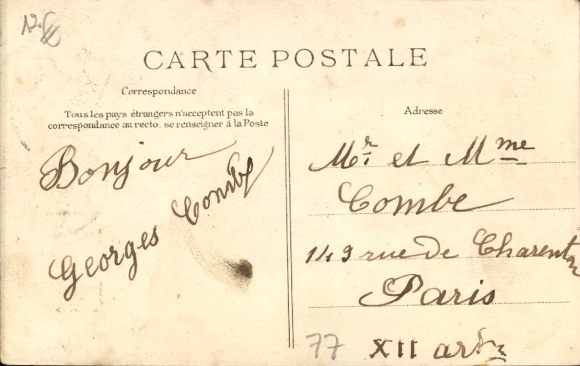 CARTE POSTALE
Correspondance
Tous les pays étrangers n'acceptent pas la
correspondance au recto. se renseigner à la Poste
Bonjour
Georges Combe
Adresse
Mr et Mme
Combe
149 rue de Charenton
Paris
XII arrt
77